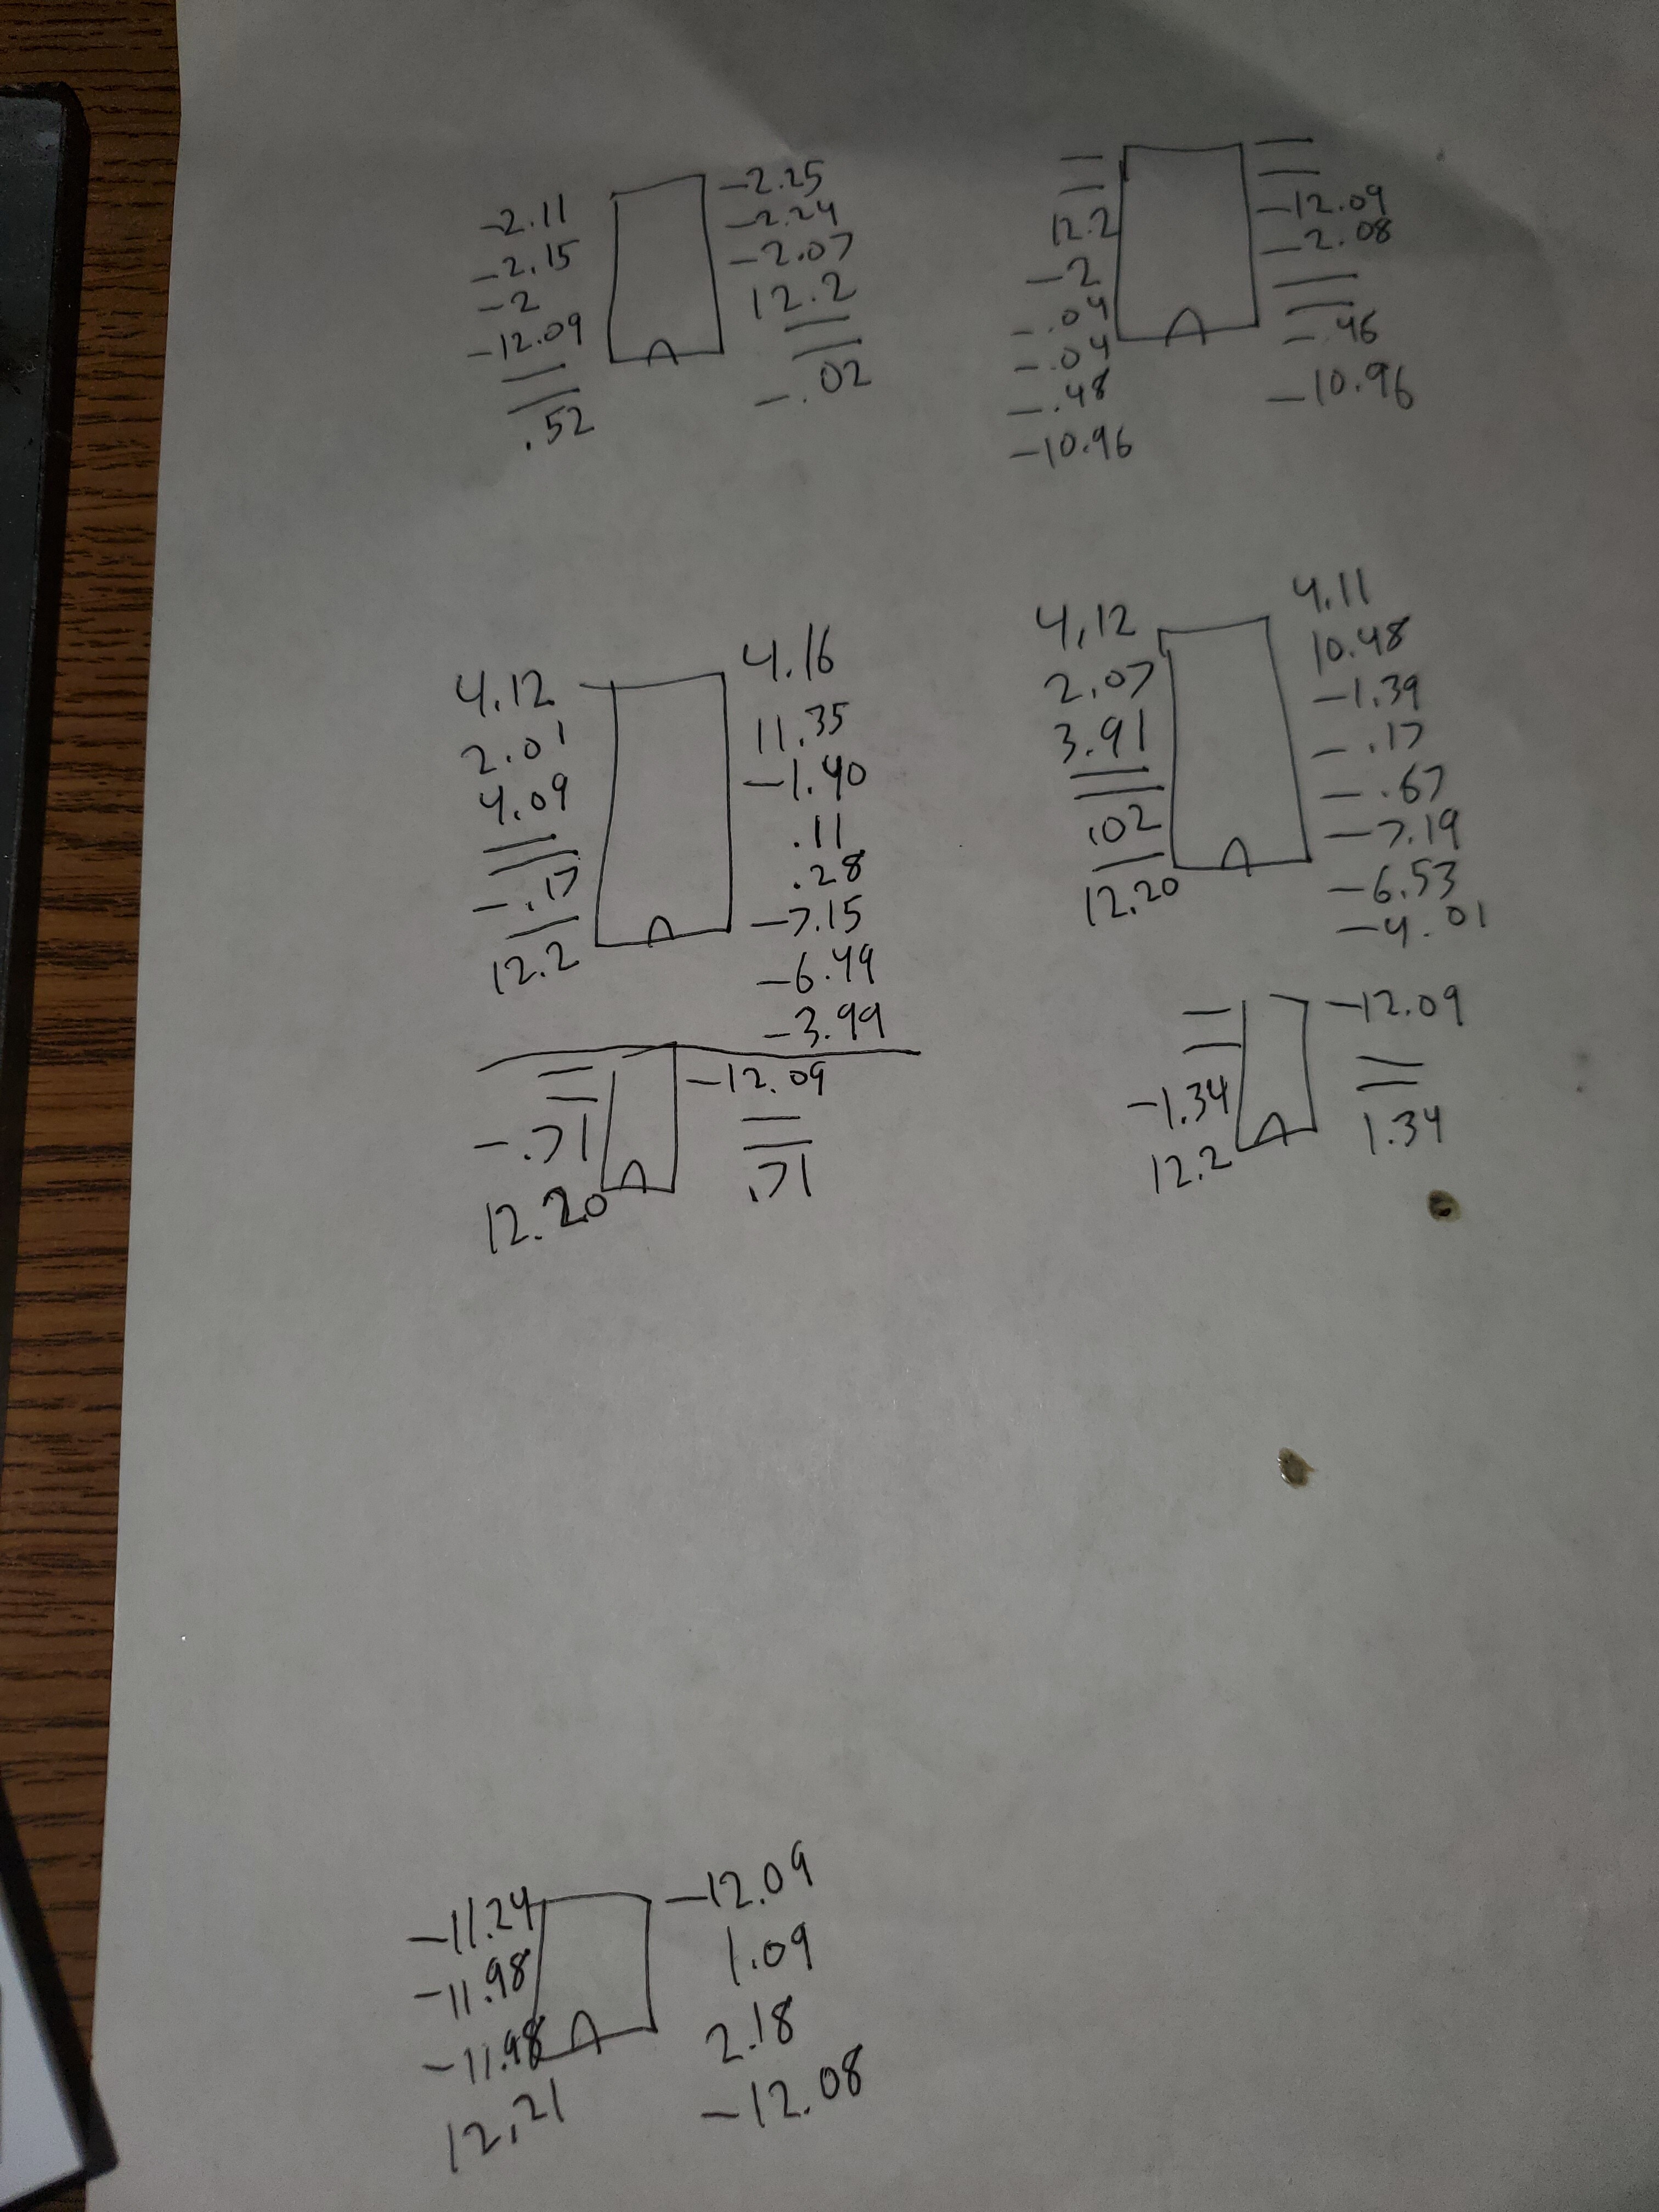 -2.11
-2.15
-2
-12.09
=
.52
-2.25
-2.24
-2.07
12.2
=
-.02
=
12.2
-2
-.04
-.04
-.48
-10.96
=
-12.09
-2.08
=
-.46
-10.96
4.12
2.01
4.09
=
-.17
—
12.2
4.16
11.35
-1.40
.11
.28
-7.15
-6.49
-3.99
4.12
2.07
3.91
=
.02
—
12.20
4.11
10.48
-1.39
-.17
-.67
-7.19
-6.53
-4.01
=
-.71
12.20
-12.09
=
.71
=
-1.34
12.2
-12.09
=
1.34
-11.24
-11.98
-11.98
12.21
-12.09
1.09
2.18
-12.08